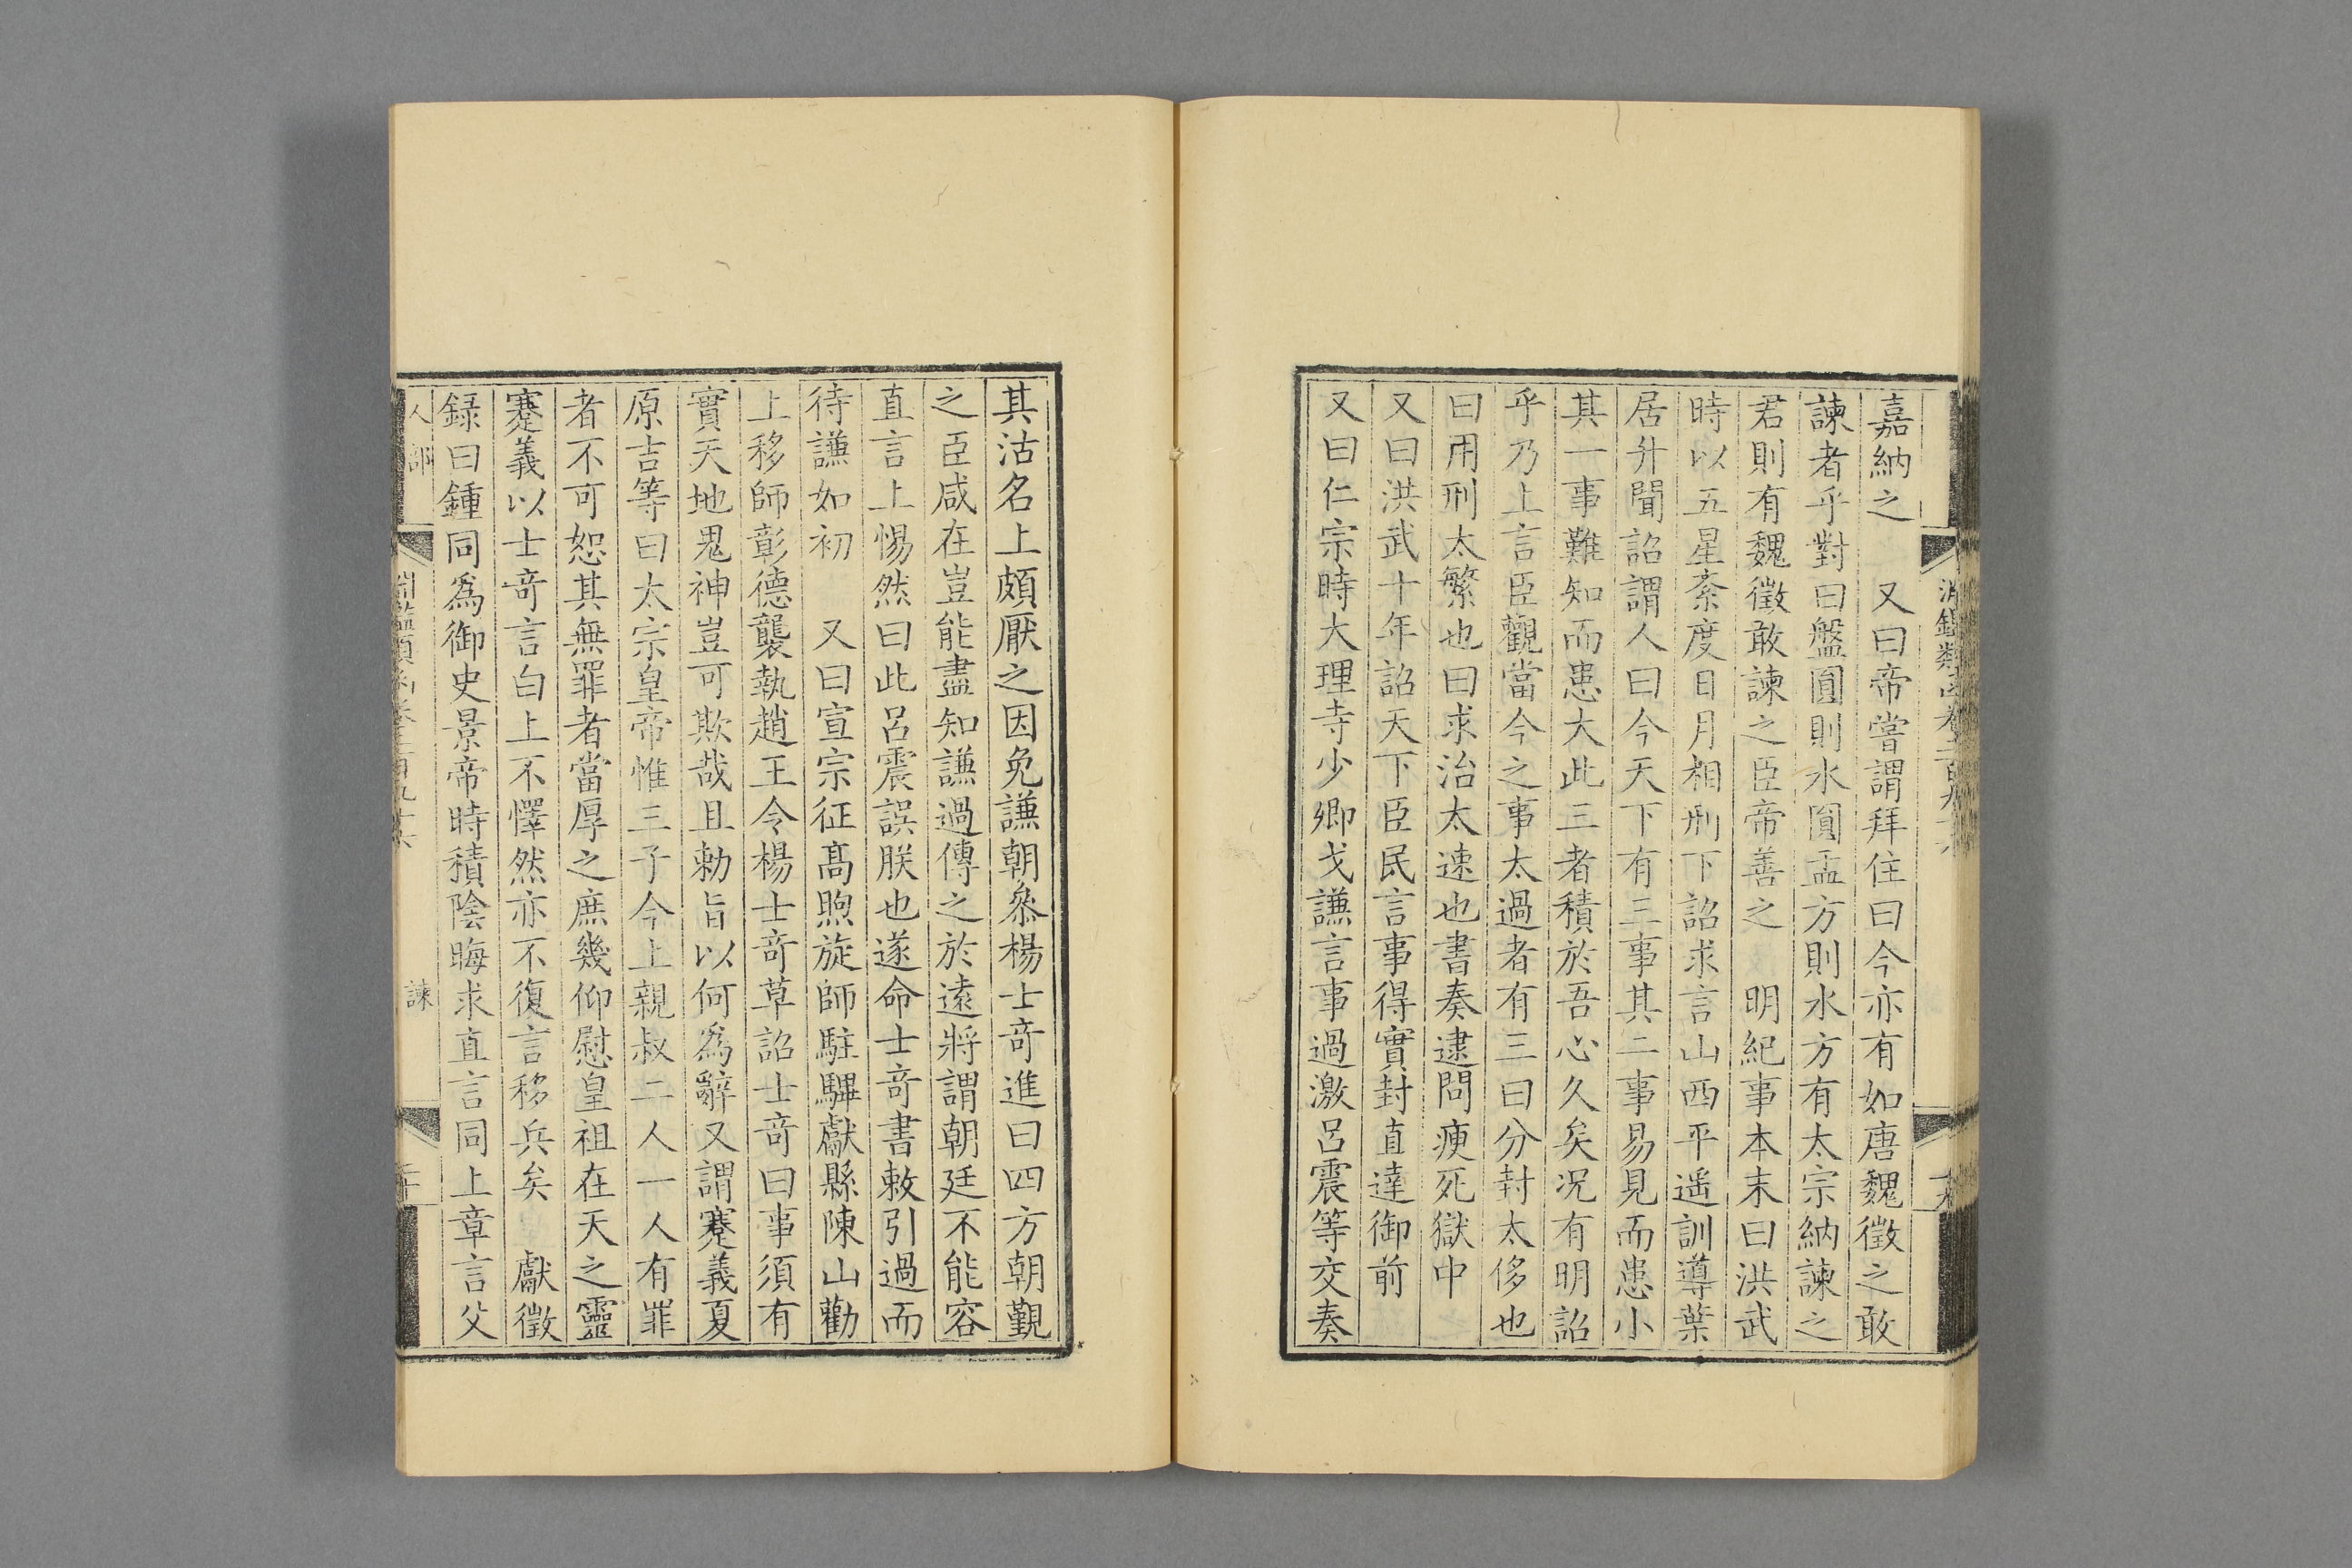 嘉納之　又曰帝嘗謂拜住曰今亦有如唐魏徵之敢
諫者乎對曰盤圓則水圓盂方則水方有太宗納諫之
君則有魏徵敢諫之臣帝善之　明紀事本末曰洪武
時以五星紊度日月相刑下詔求言山西平遙訓導葉
居升聞詔謂人曰今天下有三事其二事易見而患小
其一事難知而患大此三者積於吾心久矣况有明詔
乎乃上言臣觀當今之事太過者有三曰分封太侈也
曰用刑太繁也曰求治太速也書奏逮問瘐死獄中
又曰洪武十年詔天下臣民言事得實封直達御前
又曰仁宗時大理寺少卿戈謙言事過激呂震等交奏
其沽名上頗厭之因免謙朝叅楊士竒進曰四方朝覲
之臣咸在豈能盡知謙過傳之於遠將謂朝廷不能容
直言上惕然曰此呂震誤朕也遂命士竒書敕引過而
待謙如初　又曰宣宗征髙煦旋師駐驆獻縣陳山勸
上移師彰德襲執趙王令楊士竒草詔士竒曰事須有
實天地鬼神豈可欺哉且勅旨以何爲辭又謂蹇義夏
原吉等曰太宗皇帝惟三子今上親叔二人一人有罪
者不可恕其無罪者當厚之庶幾仰慰皇祖在天之靈
蹇義以士竒言白上不懌然亦不復言移兵矣　獻徵
録曰鍾同爲御史景帝時積陰晦求直言同上章言父
人部
諫